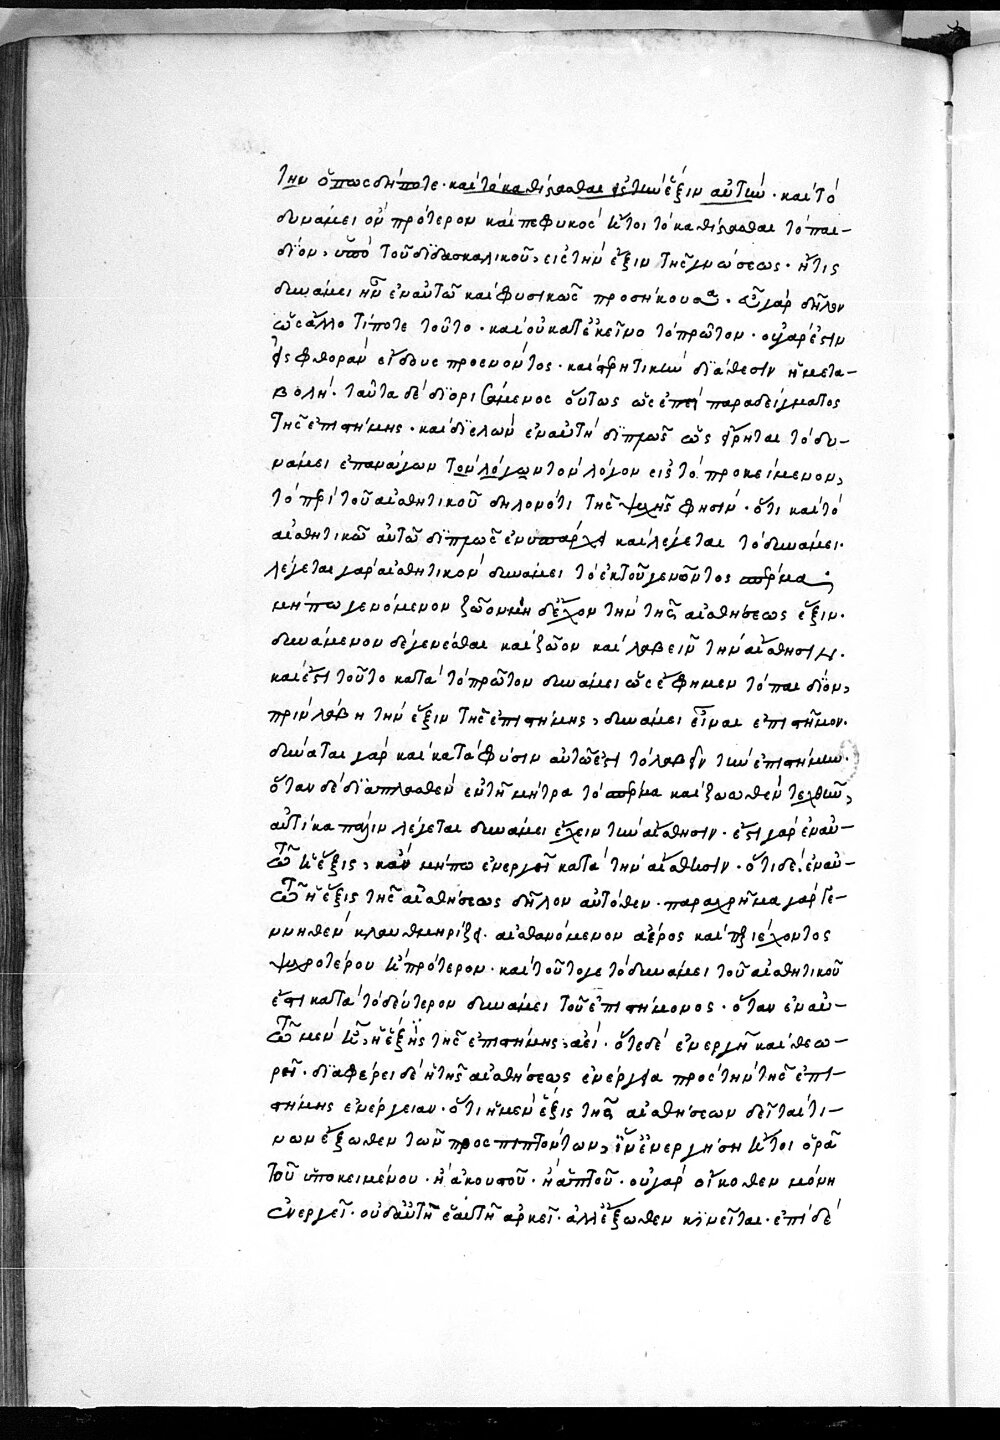 την ὅπως δήποτε · καὶ τὸ καθίστασθαι εἰς τὴν ἕξιν αὐτὴν · καὶ τὸ
δυνάμει ὂν πρότερον καὶ πεφυκὸς ἤτοι τὸ καθίστασθαι τὸ παι-
δίον, ὑπὸ τοῦ διδασκαλικοῦ, εἰς τὴν ἕξιν τῆς γνώσεως · ἥτις
δυνάμει ἦν ἐν αὐτῶ καὶ φυσικῶς προσήκουσα · γὰρ δῆλον
ὡς ἄλλό τί ποτε τοῦτο · καὶ οὐ κατ' ἐκεῖνο τὸ πρῶτον · οὐ γάρ ἐστιν
εἰς φθορὰν εἴδους προενόντος · καὶ στερητικὴν διάθεσιν ἡ μετα-
βολή · ταῦτα δὲ διορισάμενος οὕτως ὡς ἐπὶ παραδείγματος
τῆς ἐπιστήμης · καὶ διελὼν ἐν αὐτῇ διττῶς ὡς εἴρηται τὸ δυ-
νάμει ἐπανάγων τὸν λόγον εἰς τὸ προκείμενον,
τὸ περὶ τοῦ αἰσθητικοῦ δηλονότι τῆς ψυχῆς φησίν · ὅτι καὶ τὸ
αἰσθητικῶ αὐτῶ διττῶς ἐνυπάρχει καὶ λέγεται τὸ δυνάμει ·
λέγεται γὰρ αἰσθητικὸν δυνάμει τὸ ἐκ τοῦ γεννῶντος σπέρμα
μήπω γενόμενον ζῶον μὴ δ' ἔχον τὴν τῆς αἰσθήσεως ἕξιν ·
δυνάμενον δὲ γενέσθαι καὶ ζῶον καὶ λαβεῖν τὴν αἴσθησιν ·
καὶ ἔστι τοῦτο κατὰ τὸ πρῶτον δυνάμει ὡς ἔφημεν τὸ παιδίον,
πρὶν λάβη τὴν ἕξιν τῆς ἐπιστήμης, δυνάμει εἶναι ἐπιστῆμον ·
δύναται γὰρ καὶ κατὰ φύσιν αὐτῶ ἐστι τὸ λαβεῖν τὴν ἐπιστήμην ·
ὅταν δὲ διαπλασθὲν ἐν τῇ μήτρα τὸ σπέρμα καὶ ζωωθὲν τεχθῇ,
αὐτίκα πάλιν λέγεται δυνάμει ἔχειν τὴν αἴσθησιν · ἔστι γὰρ ἐν αὐ-
τῶ ἡ ἕξις, κἂν μήπω ἐνεργεῖ κατὰ τὴν αἴσθησιν · ὅτι δὲ ἐν αὐ-
τῶ ἡ ἕξις τῆς αἰσθήσεως δῆλον αὐτόθεν · παραχρῆμα γὰρ γε-
ννηθὲν κλαυθμηρίζει · αἰσθανόμενον ἀέρος καὶ περιέχοντος
ψυχροτέρου ἢ πρότερον · καὶ τοῦτό γε τὸ δυνάμει τοῦ αἰσθητικοῦ
ἔστι κατὰ τὸ δεύτερον δυνάμει τοῦ ἐπιστήμονος · ὅταν ἐν αὐ-
τῶ μὲν ἦ, ἡ ἕξις τῆς ἐπιστήμης, ἀεί · ὅτε δὲ ἐνεργῆ καὶ θεω-
ρεῖ · διαφέρει δὲ ἡ τῆς αἰσθήσεως ἐνέργεια πρὸς τὴν τῆς ἐπι-
στήμης ἐνέργειαν · ὅτι ἡ μὲν ἕξις τῆς αἰσθήσεων δεῖται τι-
νων ἔξωθεν τῶν προσπιπτόντων, ἵν' ἐνεργήση ἤτοι ὁρα-
τοῦ ὑποκειμένου · ἢ ἀκουστοῦ · ἢ ἁπτοῦ · οὐ γὰρ οἴκοθεν μόνη
ἐνεργεῖ · οὐδ' αὐτὴ ἑαυτῇ ἀρκεῖ · ἀλλ' ἔξωθεν κινεῖται · ἐπὶ δὲ